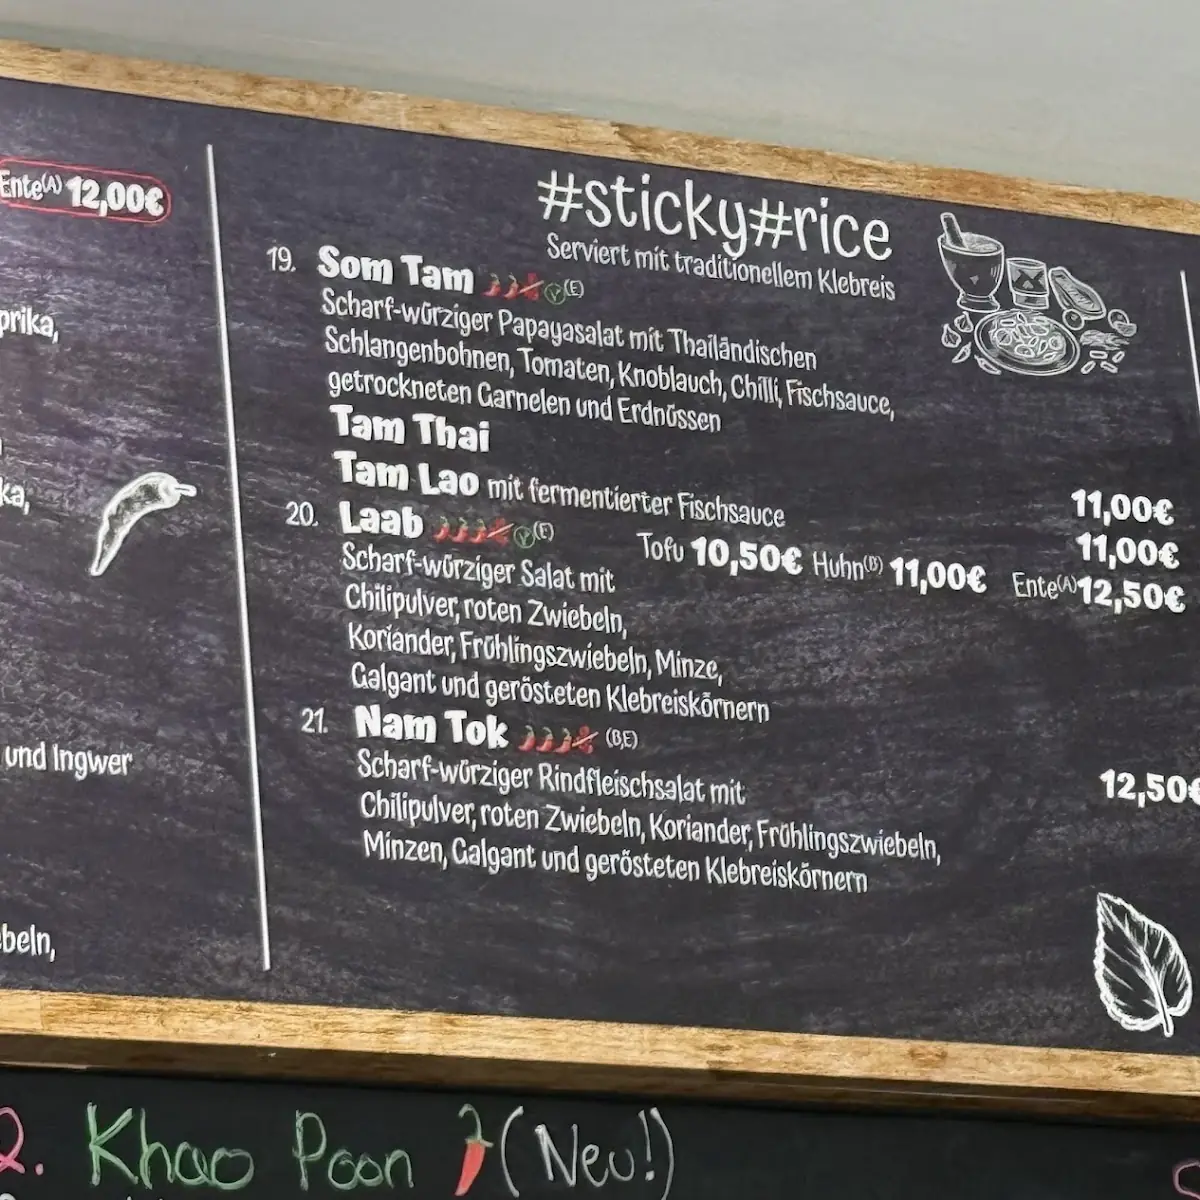 Ente(A) 12,00€
prika,
ka,
und Ingwer
beln,
#sticky#rice
Serviert mit traditionellem Klebreis
19. Som Tam (E)
Scharf-würziger Papayasalat mit Thailändischen
Schlangenbohnen, Tomaten, Knoblauch, Chilli, Fischsauce,
getrockneten Garnelen und Erdnüssen
Tam Thai 11,00€
Tam Lao mit fermentierter Fischsauce 11,00€
20. Laab (E) Tofu 10,50€ Huhn(B) 11,00€ Ente(A) 12,50€
Scharf-würziger Salat mit
Chilipulver, roten Zwiebeln,
Koriander, Frühlingszwiebeln, Minze,
Galgant und gerösteten Klebreiskörnern
21. Nam Tok (B,E) 12,50€
Scharf-würziger Rindfleischsalat mit
Chilipulver, roten Zwiebeln, Koriander, Frühlingszwiebeln,
Minzen, Galgant und gerösteten Klebreiskörnern
2. Khao Poon (Neu!)